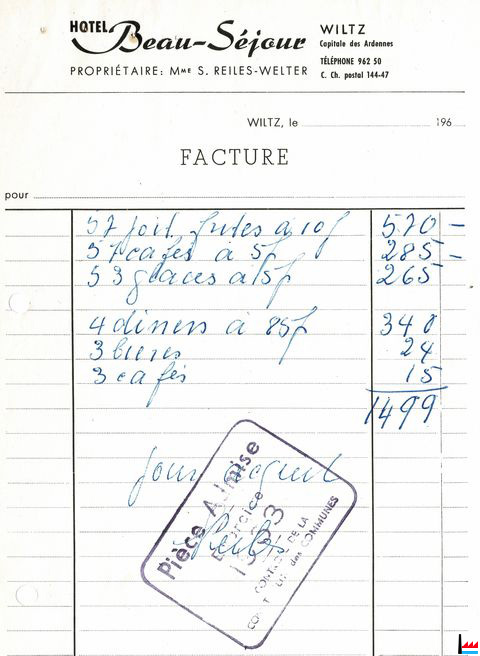 HOTEL Beau-Séjour
PROPRIÉTAIRE: MME S. REILES-WELTER
WILTZ
Capitale des Ardennes
TÉLÉPHONE 962 50
C. Ch. postal 144-47
WILTZ, le 196
FACTURE
pour
57 frites à 10f 570 -
57 cafés à 5f 285 -
53 glaces à 5f 265
4 diners à 85f 340
3 bieres 24
3 cafés 15
1499
pour acquit
Pièce Admise
Exercice
1963
DE LA
des COMMUNES